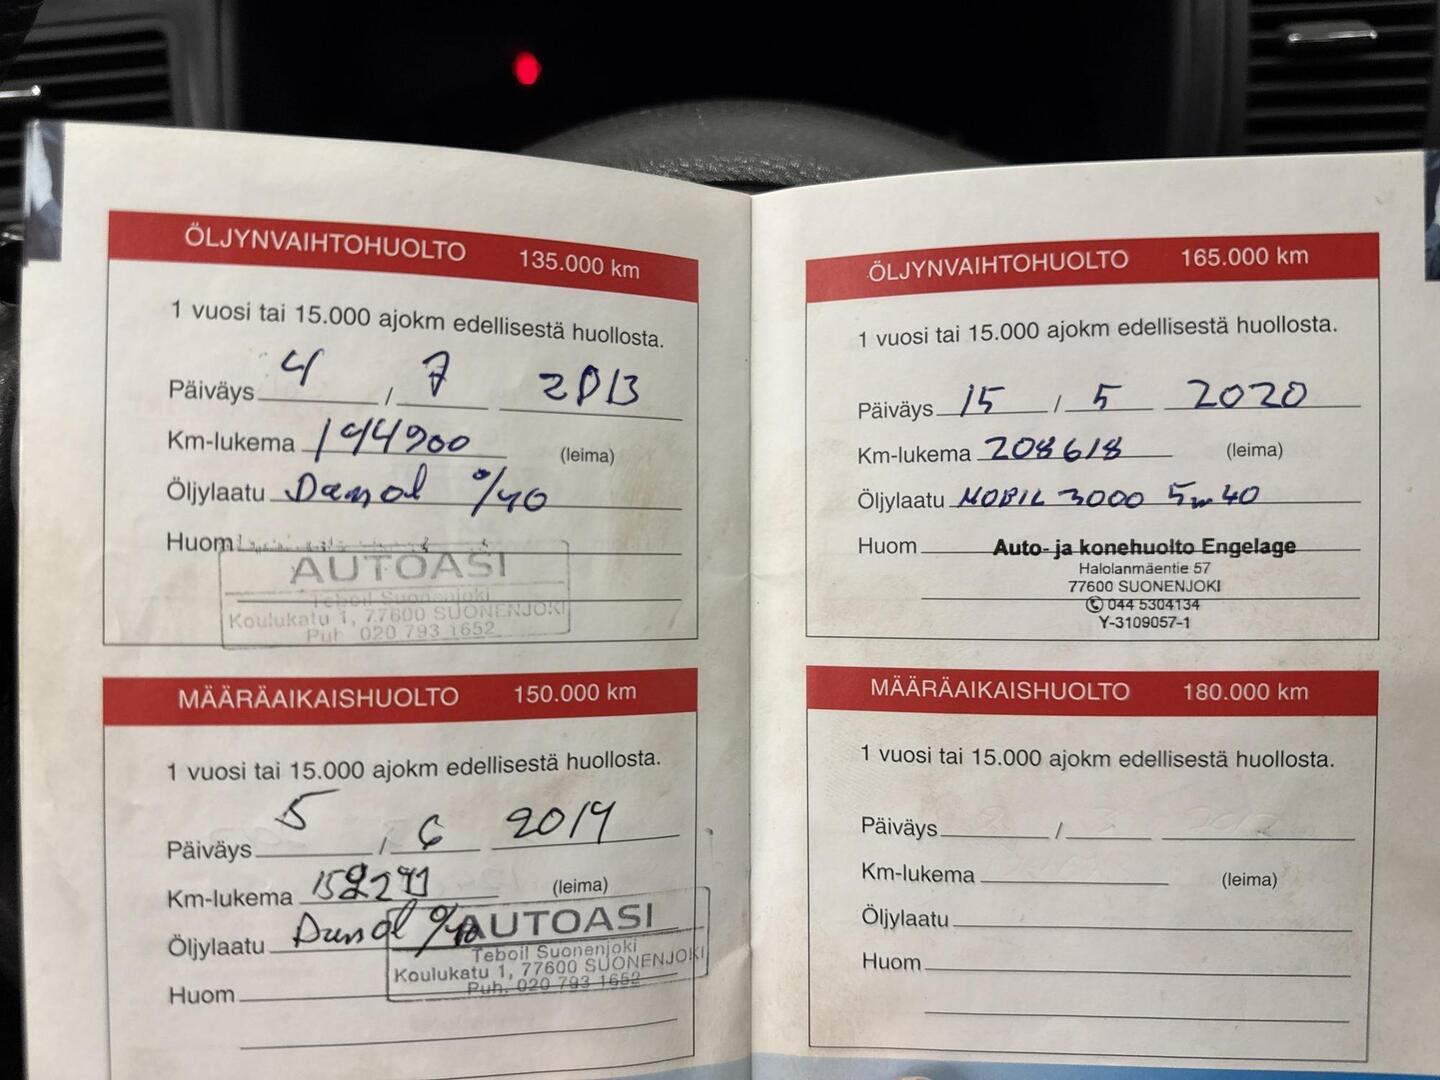 ÖLJYNVAIHTOHUOLTO 135.000 km
1 vuosi tai 15.000 ajokm edellisestä huollosta.
Päiväys 4 / 7 2013
Km-lukema 144900 (leima)
Öljylaatu 0/40
Huom
AUTOASI
Teboil Suonenjoki
Koulukatu 1, 77600 SUONENJOKI
Puh. 020 793 1652
MÄÄRÄAIKAISHUOLTO 150.000 km
1 vuosi tai 15.000 ajokm edellisestä huollosta.
Päiväys 5 / 6 2014
Km-lukema (leima)
Öljylaatu
AUTOASI
Teboil Suonenjoki
Koulukatu 1, 77600 SUONENJOKI
Huom
Puh. 020 793 1652
ÖLJYNVAIHTOHUOLTO 165.000 km
1 vuosi tai 15.000 ajokm edellisestä huollosta.
Päiväys 15 / 5 2020
Km-lukema 208618 (leima)
Öljylaatu MOBIL 3000 5w40
Huom Auto- ja konehuolto Engelage
Halolanmäentie 57
77600 SUONENJOKI
✆ 044 5304134
Y-3109057-1
MÄÄRÄAIKAISHUOLTO 180.000 km
1 vuosi tai 15.000 ajokm edellisestä huollosta.
Päiväys /
Km-lukema (leima)
Öljylaatu
Huom